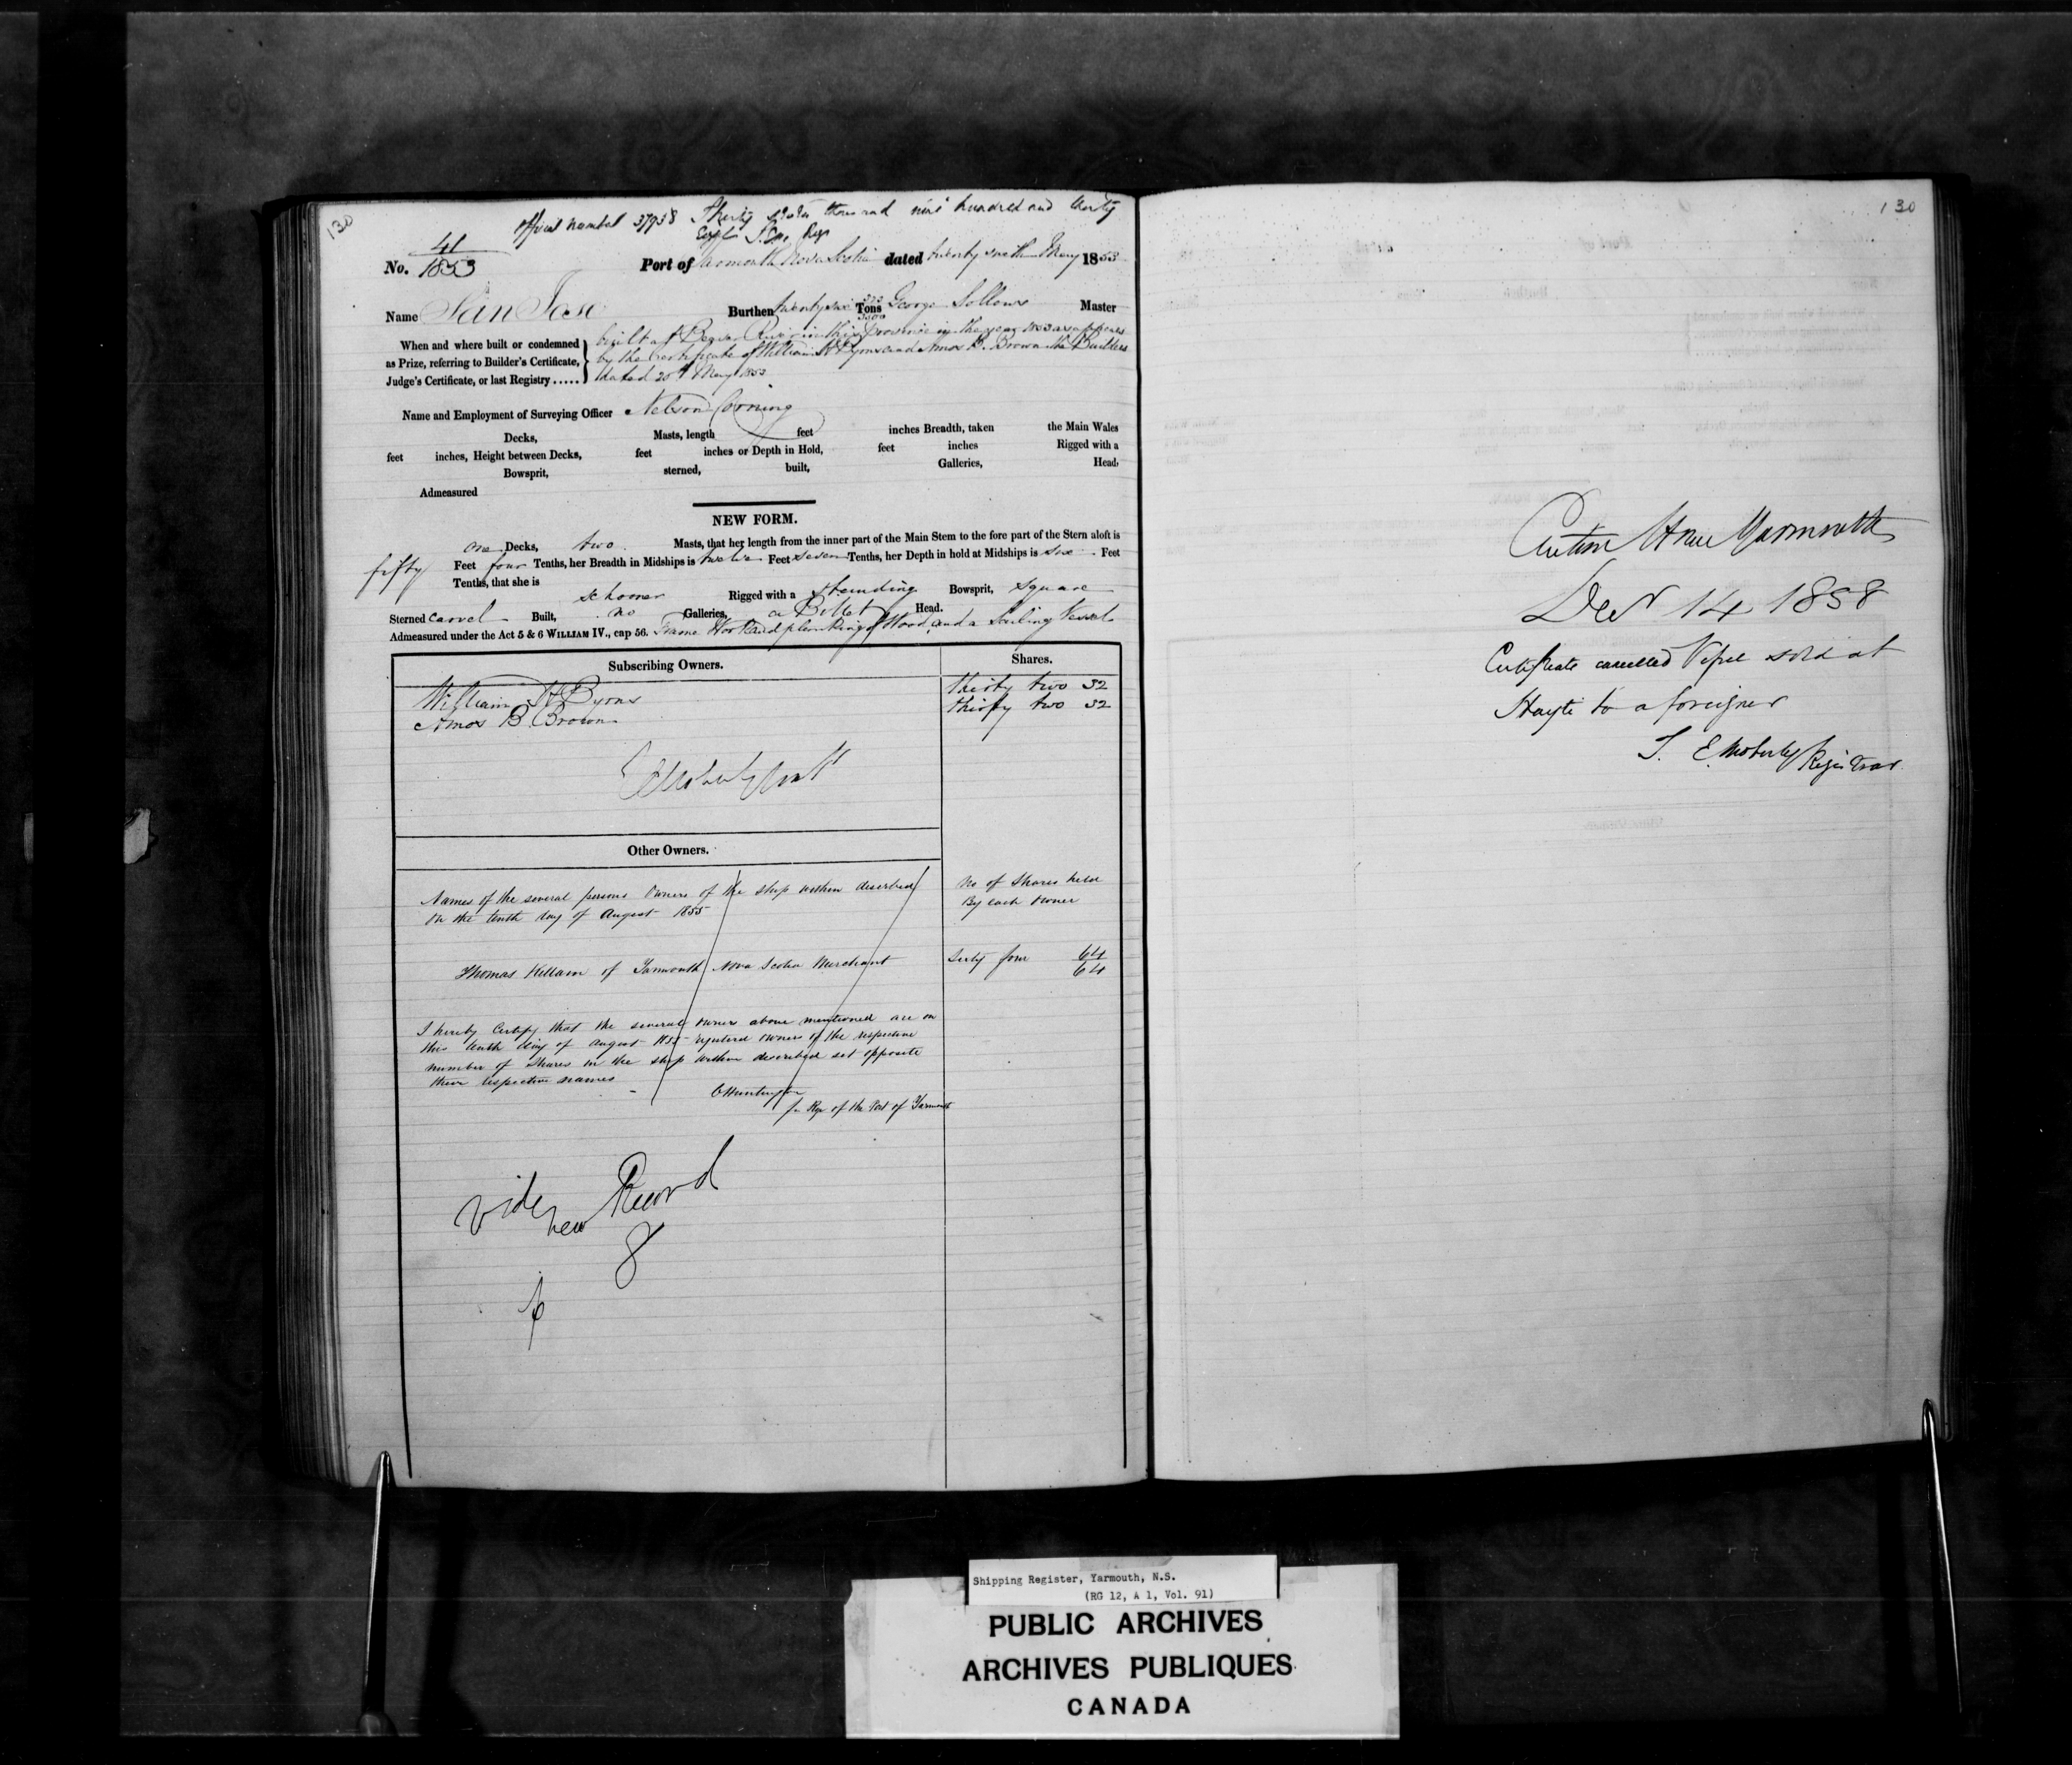 130
Official number 37958 Thirty seven thousand nine hundred and thirty
No. 41
1853
Port of Yarmouth Nova Scotia dated twenty sixth May 1853
Name San Jose Burthen twenty six 323 Tons 3500 George Sollows Master
When and where built or condemned
as Prize, referring to Builder's Certificate,
Judge's Certificate, or last Registry .....
built at Beaver River in this province in the year 1853 as appears
by the Certificate of William H Byrns and Amos B. Brown the Builders
dated 20th May 1853
Name and Employment of Surveying Officer Nelson Corning
Decks, Masts, length feet inches Breadth, taken the Main Wales
feet inches, Height between Decks, feet inches or Depth in Hold, feet inches Rigged with a
Bowsprit, sterned, built, Galleries, Head,
Admeasured
NEW FORM.
one Decks, two Masts, that her length from the inner part of the Main Stem to the fore part of the Stern aloft is
fifty Feet four Tenths, her Breadth in Midships is twelve Feet seven Tenths, her Depth in hold at Midships is six Feet
Tenths, that she is schooner Rigged with a standing Bowsprit, square
Sterned carvel Built, no Galleries, a Billet Head.
Admeasured under the Act 5 & 6 WILLIAM IV., cap 56. Frame Work and planking of Wood, and a Sailing Vessel
Subscribing Owners. Shares.
William H Byrns thirty two 32
Amos B. Brown thirty two 32
Other Owners.
Names of the several persons Owners of the ship within described
on the tenth day of August 1855
No of Shares held
By each owner
Thomas Killam of Yarmouth Nova Scotia Merchant Sixty four 64
64
I hereby Certify that the several owners above mentioned are on
this tenth day of August 1855 registered owners of the respective
number of Shares in the ship within described set opposite
their respective names
C Huntington
for Regr of the Port of Yarmouth
Vide new Record
8
130
Custom House Yarmouth
Decr 14 1858
Certificate cancelled Vessel sold at
Hayti to a foreigner
J. E. Moberly Registrar
Shipping Register, Yarmouth, N.S.
(RG 12, A 1, Vol. 91)
PUBLIC ARCHIVES
ARCHIVES PUBLIQUES
CANADA